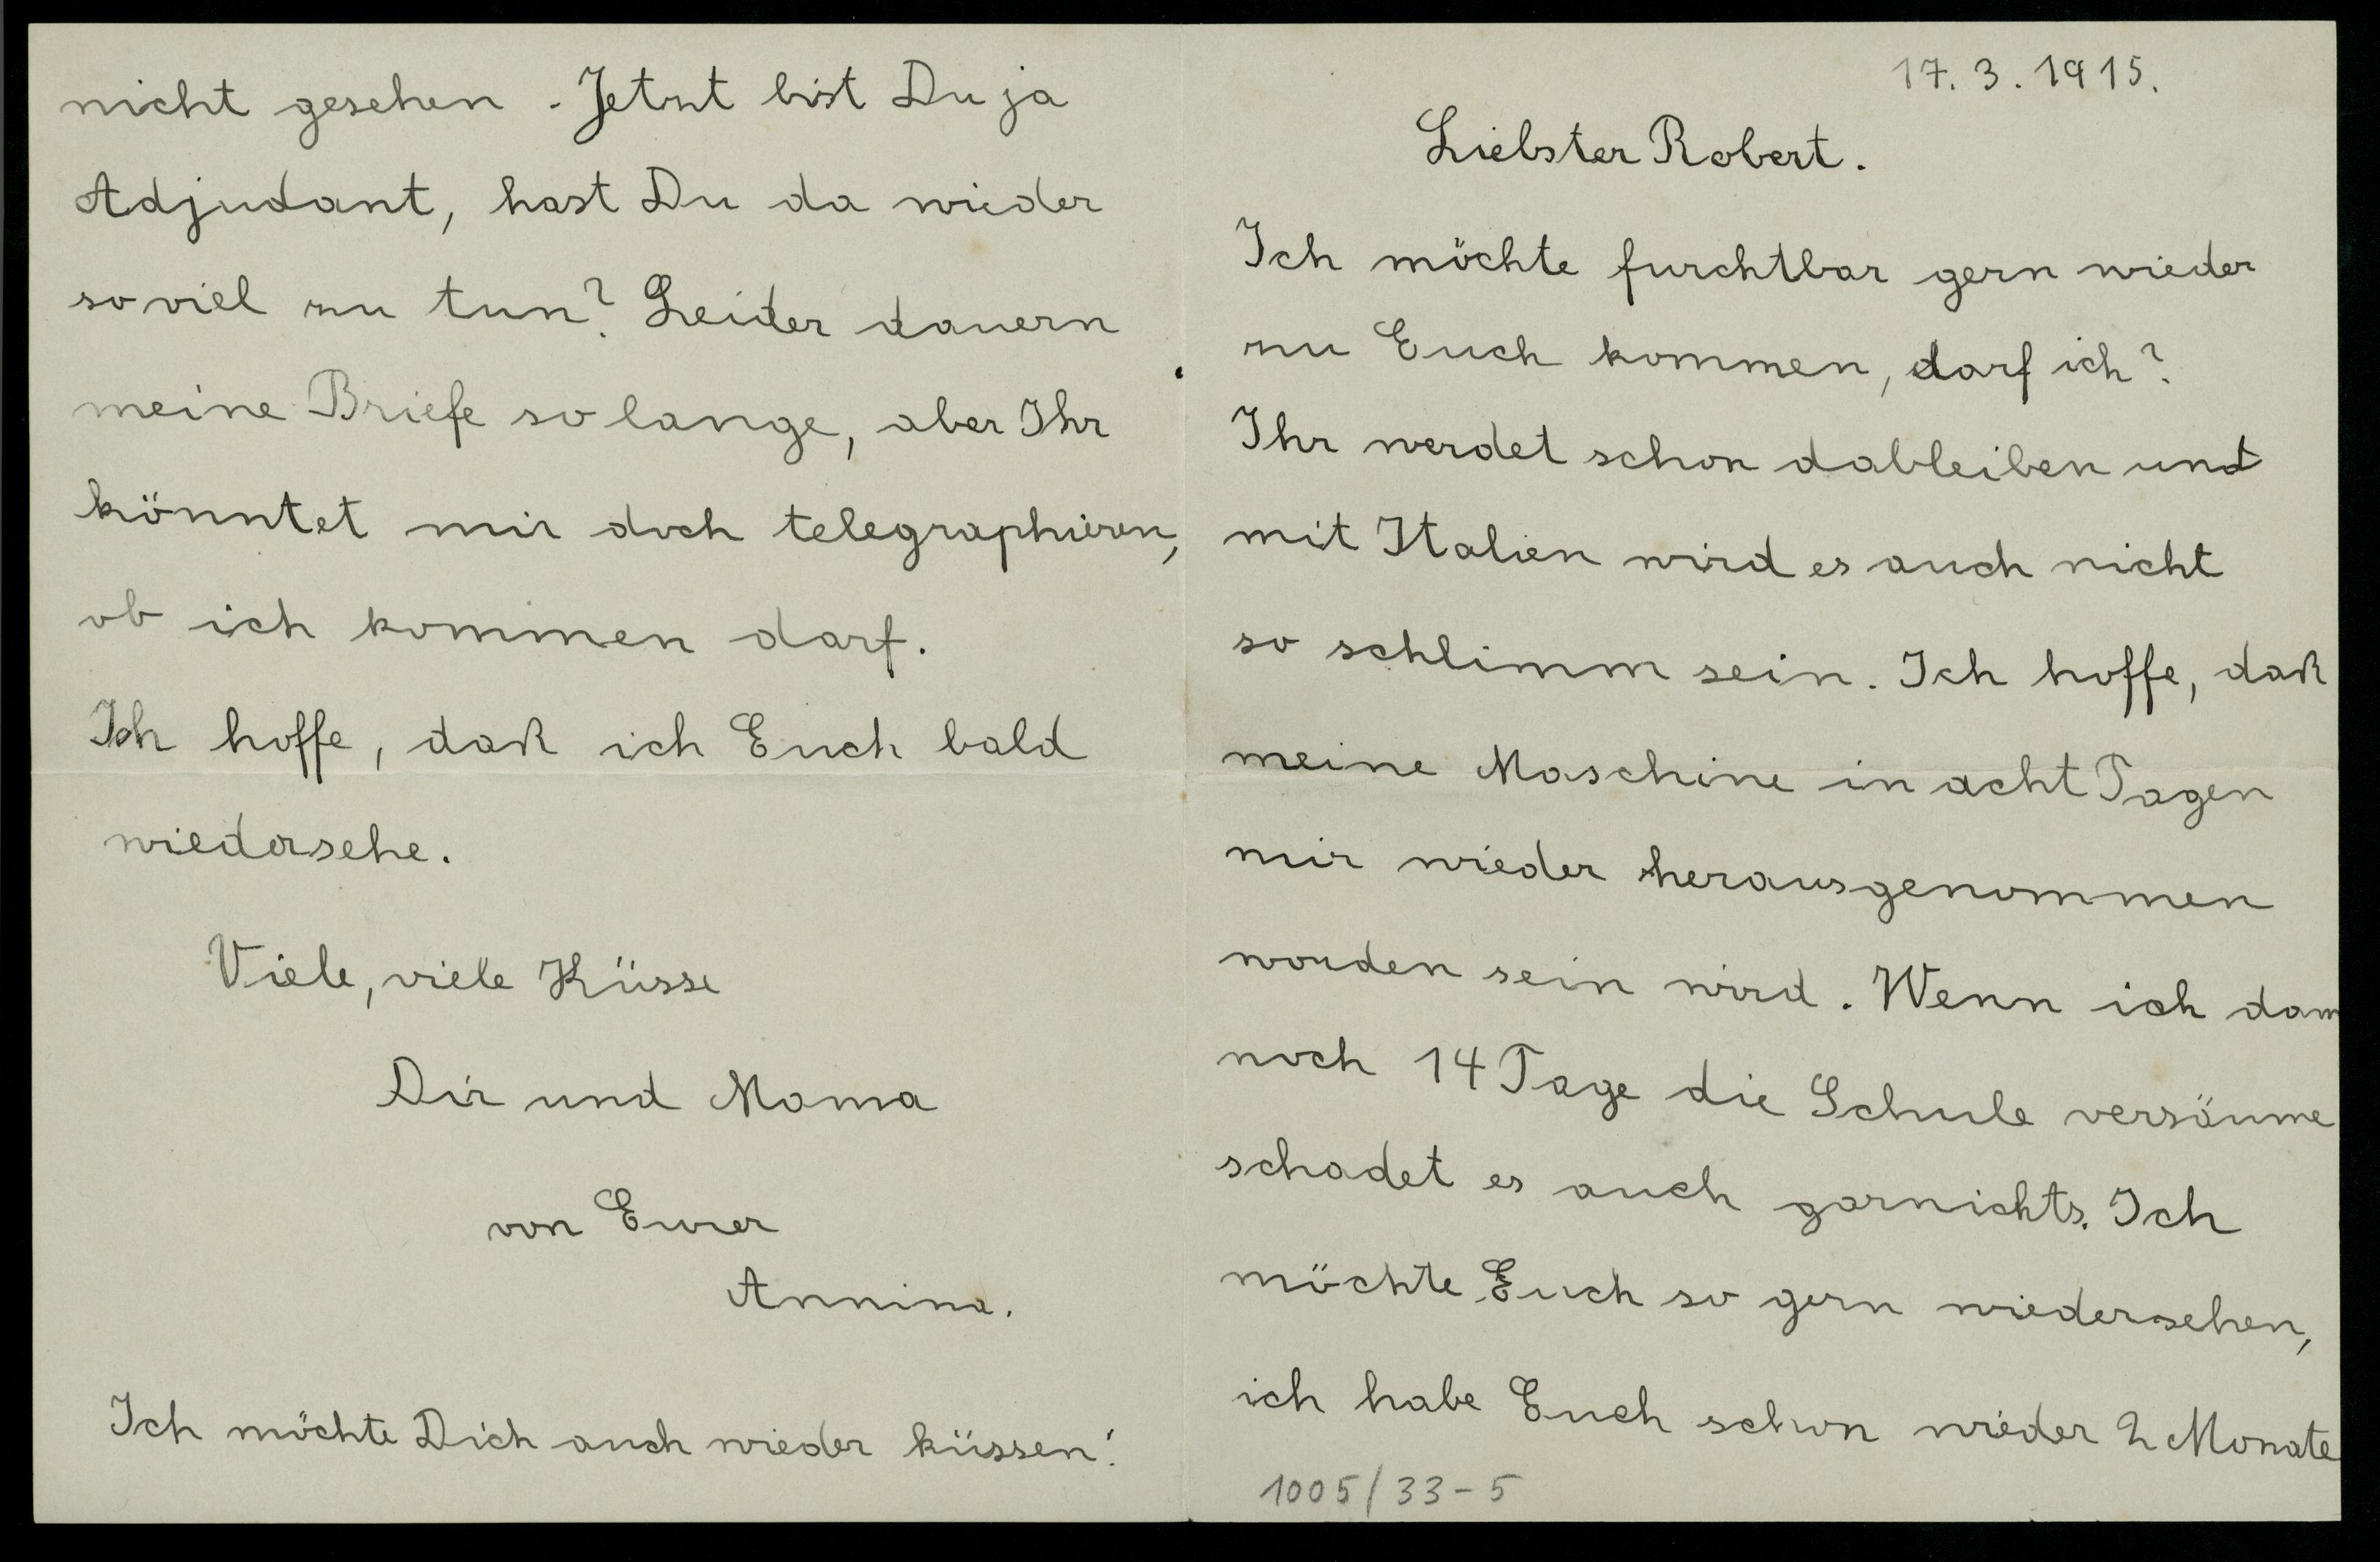 17. 3. 1915.
Liebster Robert.
Ich möchte furchtbar gern wieder
zu Euch kommen, darf ich?
Ihr werdet schon dableiben und
mit Italien wird es auch nicht
so schlimm sein. Ich hoffe, daß
meine Maschine in acht Tagen
mir wieder herausgenommen
worden sein wird. Wenn ich dann
noch 14 Tage die Schule versäume
schadet es auch garnichts. Ich
möchte Euch so gern wiedersehen,
ich habe Euch schon wieder 2 Monate
1005/33-5
nicht gesehen. Jetzt bist Du ja
Adjudant, hast Du da wieder
soviel zu tun? Leider dauern
meine Briefe so lange, aber Ihr
könntet mir doch telegraphieren,
ob ich kommen darf.
Ich hoffe, daß ich Euch bald
wiedersehe.
Viele, viele Küsse
Dir und Mama
von Eurer
Annina.
Ich möchte Dich auch wieder küssen!